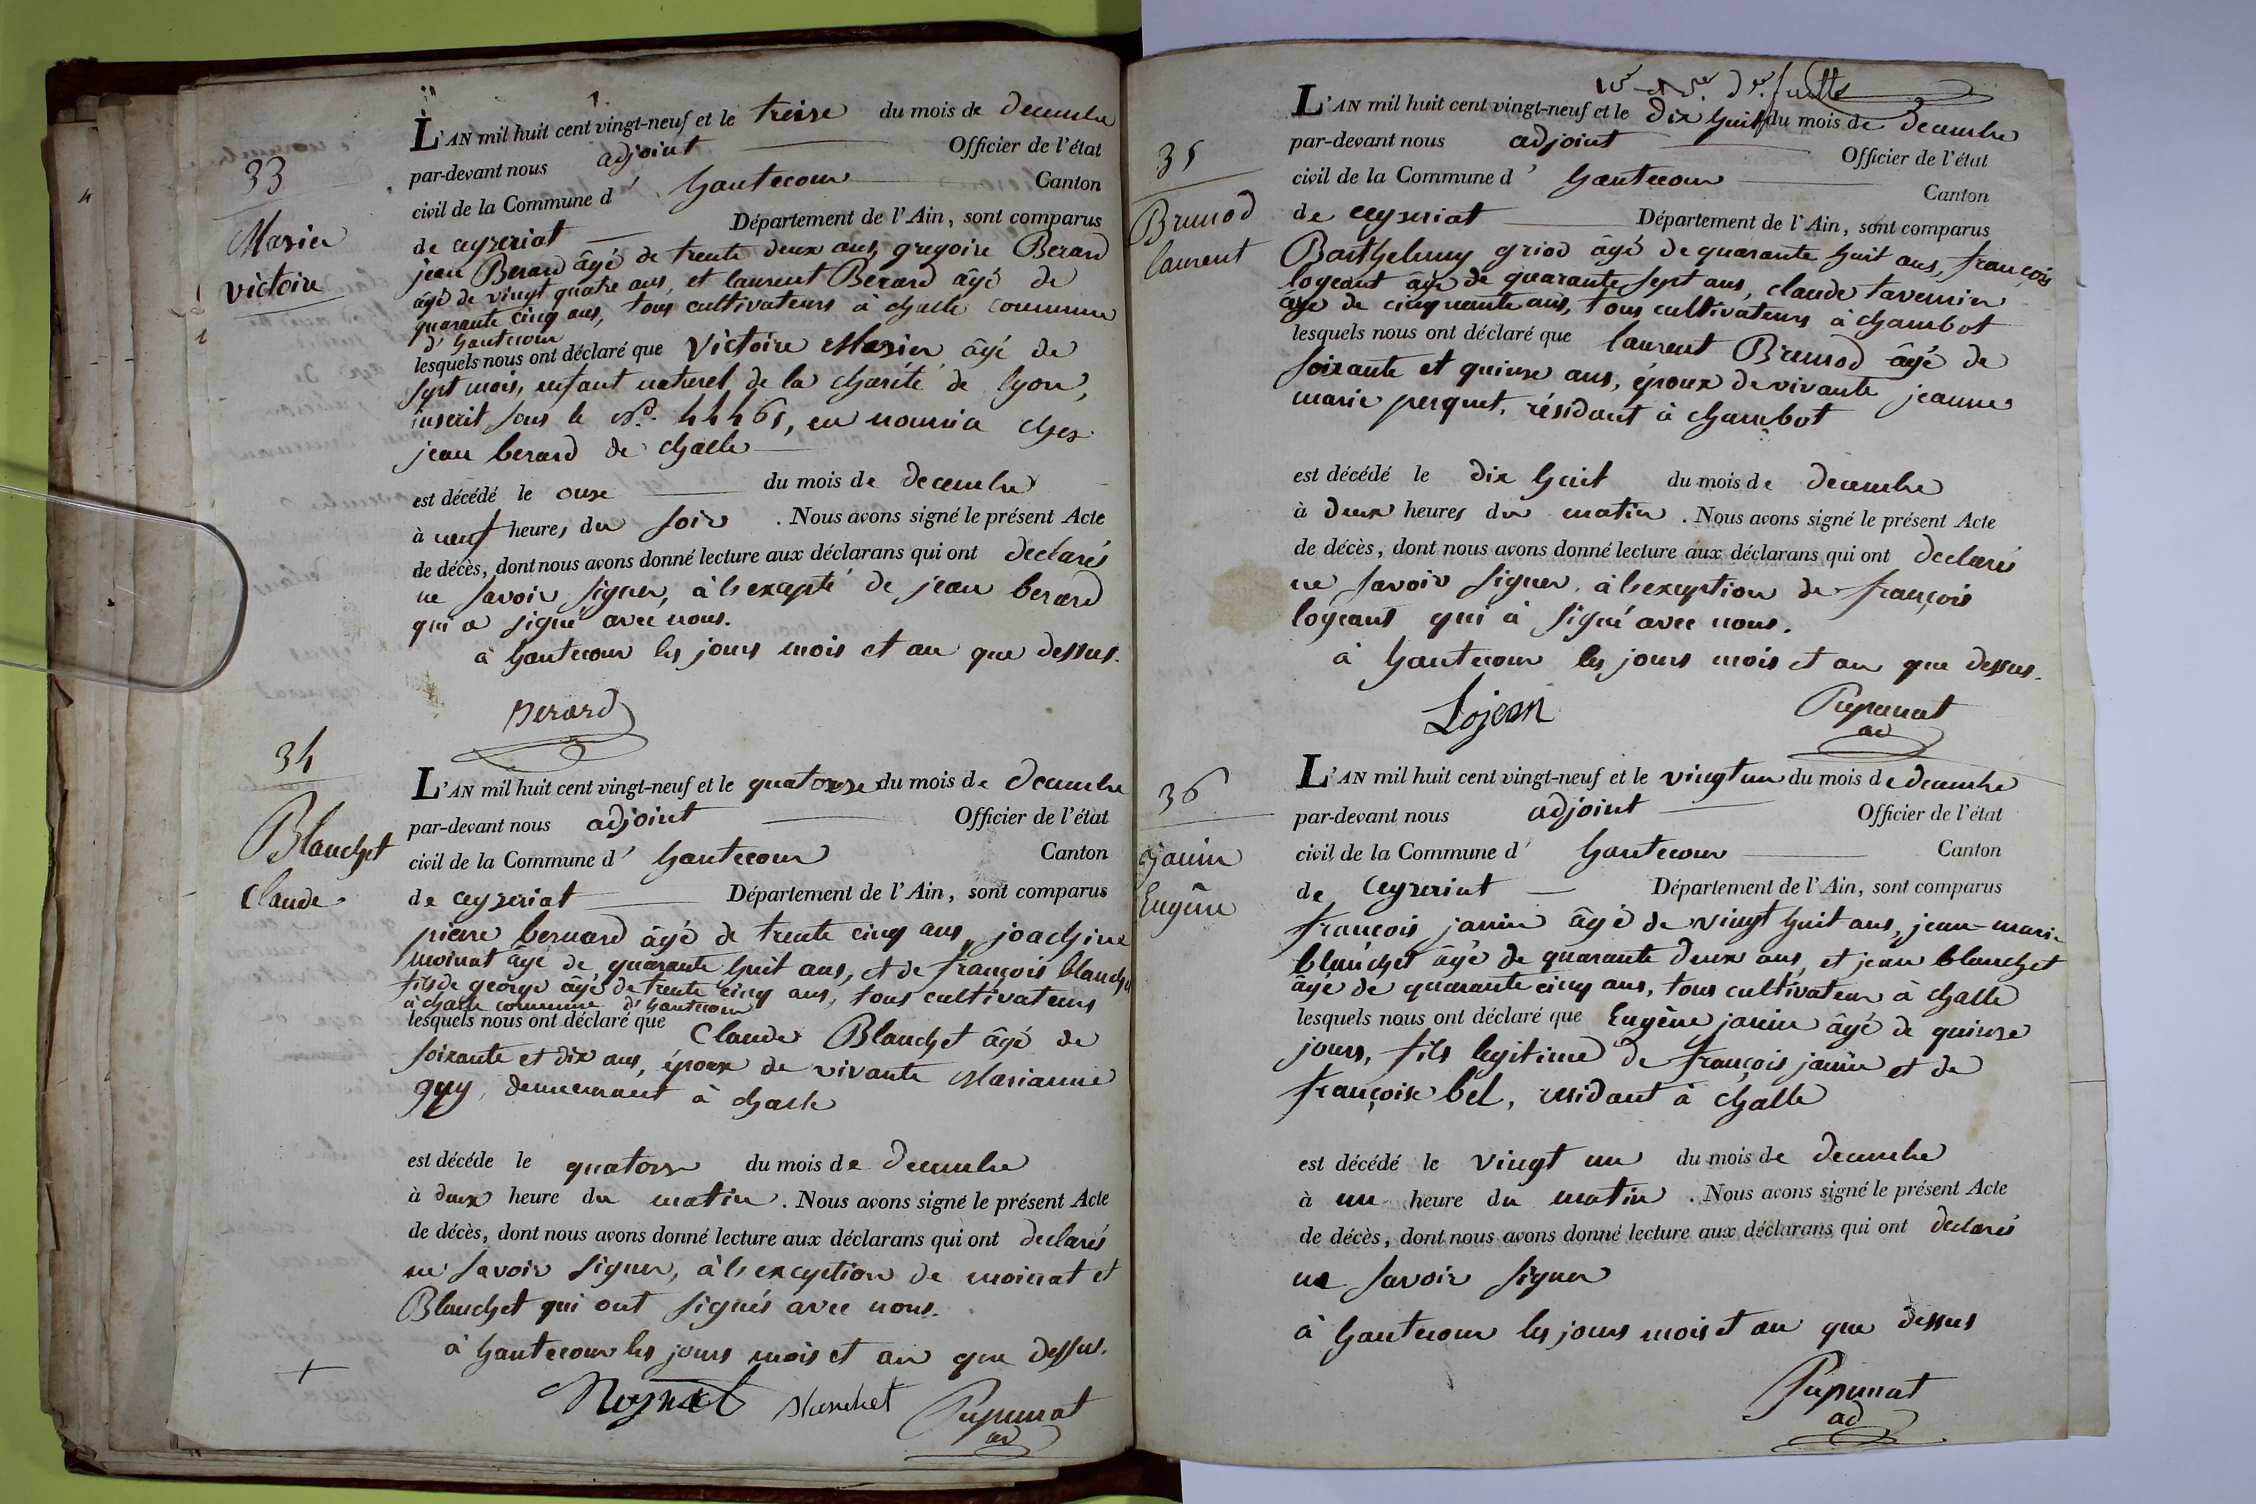 33
Marier
victoire
L'AN mil huit cent vingt-neuf et le treise du mois de decembre
par-devant nous adjoint Officier de l'état
civil de la Commune d' hautecour Canton
de ceyzeriat Département de l'Ain, sont comparus
jean Berard âgé de trente deux ans, gregoire Berard
âgé de vingt quatre ans, et laurent Berard âgé de
quarante cinq ans, tous cultivateurs à challe commune
d'hautecour
lesquels nous ont déclaré que Victoire Marier âgé de
sept mois, enfant naturel de la charité de lyon,
inscrit sous le N°. 44461, en nourrice chez
jean berard de challe
est décédé le onze du mois de decembre
à neuf heures du soir. Nous avons signé le présent Acte
de décès, dont nous avons donné lecture aux déclarans qui ont declarés
ne savoir signer, à l'exepté de jean berard
qui a signé avec nous.
à hautecour les jours mois et an que dessus.
Berard
34
Blanchet
Claude
L'AN mil huit cent vingt-neuf et le quatorze du mois de decembre
par-devant nous adjoint Officier de l'état
civil de la Commune d' hautecour Canton
de ceyzeriat Département de l'Ain, sont comparus
pierre bernard âgé de trente cinq ans, joachim
moinat âgé de quarante huit ans, et de françois blanchet
fils de george âgé de trente cinq ans, tous cultivateurs
à challe commune d'hautecour
lesquels nous ont déclaré que Claude Blanchet âgé de
soixante et dix ans, époux de vivante Marianne
guy, demeurant à challe
est décédé le quatorze du mois de decembre
à deux heure du matin. Nous avons signé le présent Acte
de décès, dont nous avons donné lecture aux déclarans qui ont declarés
ne savoir signer, à l'exception de moinat et
Blanchet qui ont signés avec nous.
à hautecour les jours mois et an que dessus.
Blanchet Pupunat
ad
35
Brunod
laurent
L'AN mil huit cent vingt-neuf et le dix huit du mois de decembre
par-devant nous adjoint Officier de l'état
civil de la Commune d' hautecour Canton
de ceyzeriat Département de l'Ain, sont comparus
Barthelemy griod âgé de quarante huit ans, françois
logeant âgé de quarante sept ans, claude tavernier
âgé de cinquante ans, tous cultivateurs à chambot
lesquels nous ont déclaré que laurent Brunod âgé de
soixante et quinze ans, époux de vivante jeanne
marie perquet, résidant à chambot
est décédé le dix huit du mois de decembre
à deux heures du matin. Nous avons signé le présent Acte
de décès, dont nous avons donné lecture aux déclarans qui ont declarés
ne savoir signer, à l'exception de françois
logeant qui à signé avec nous.
à hautecour les jours mois et an que dessus.
Lojean Pupunat
ad
36
Janin
Eugène
L'AN mil huit cent vingt-neuf et le vingt un du mois de decembre
par-devant nous adjoint Officier de l'état
civil de la Commune d' hautecour Canton
de Ceyzeriat Département de l'Ain, sont comparus
françois janin âgé de vingt huit ans, jean-marie
blanchet âgé de quarante deux ans, et jean blanchet
âgé de quarante cinq ans, tous cultivateur à challe
lesquels nous ont déclaré que Eugène janin âgé de quinze
jours, fils legitime de françois janin et de
françoise bel, residant à challe
est décédé le vingt un du mois de decembre
à un heure du matin. Nous avons signé le présent Acte
de décès, dont nous avons donné lecture aux déclarans qui ont declarés
ne savoir signer
à hautecour les jours mois et an que dessus
Pupunat
ad